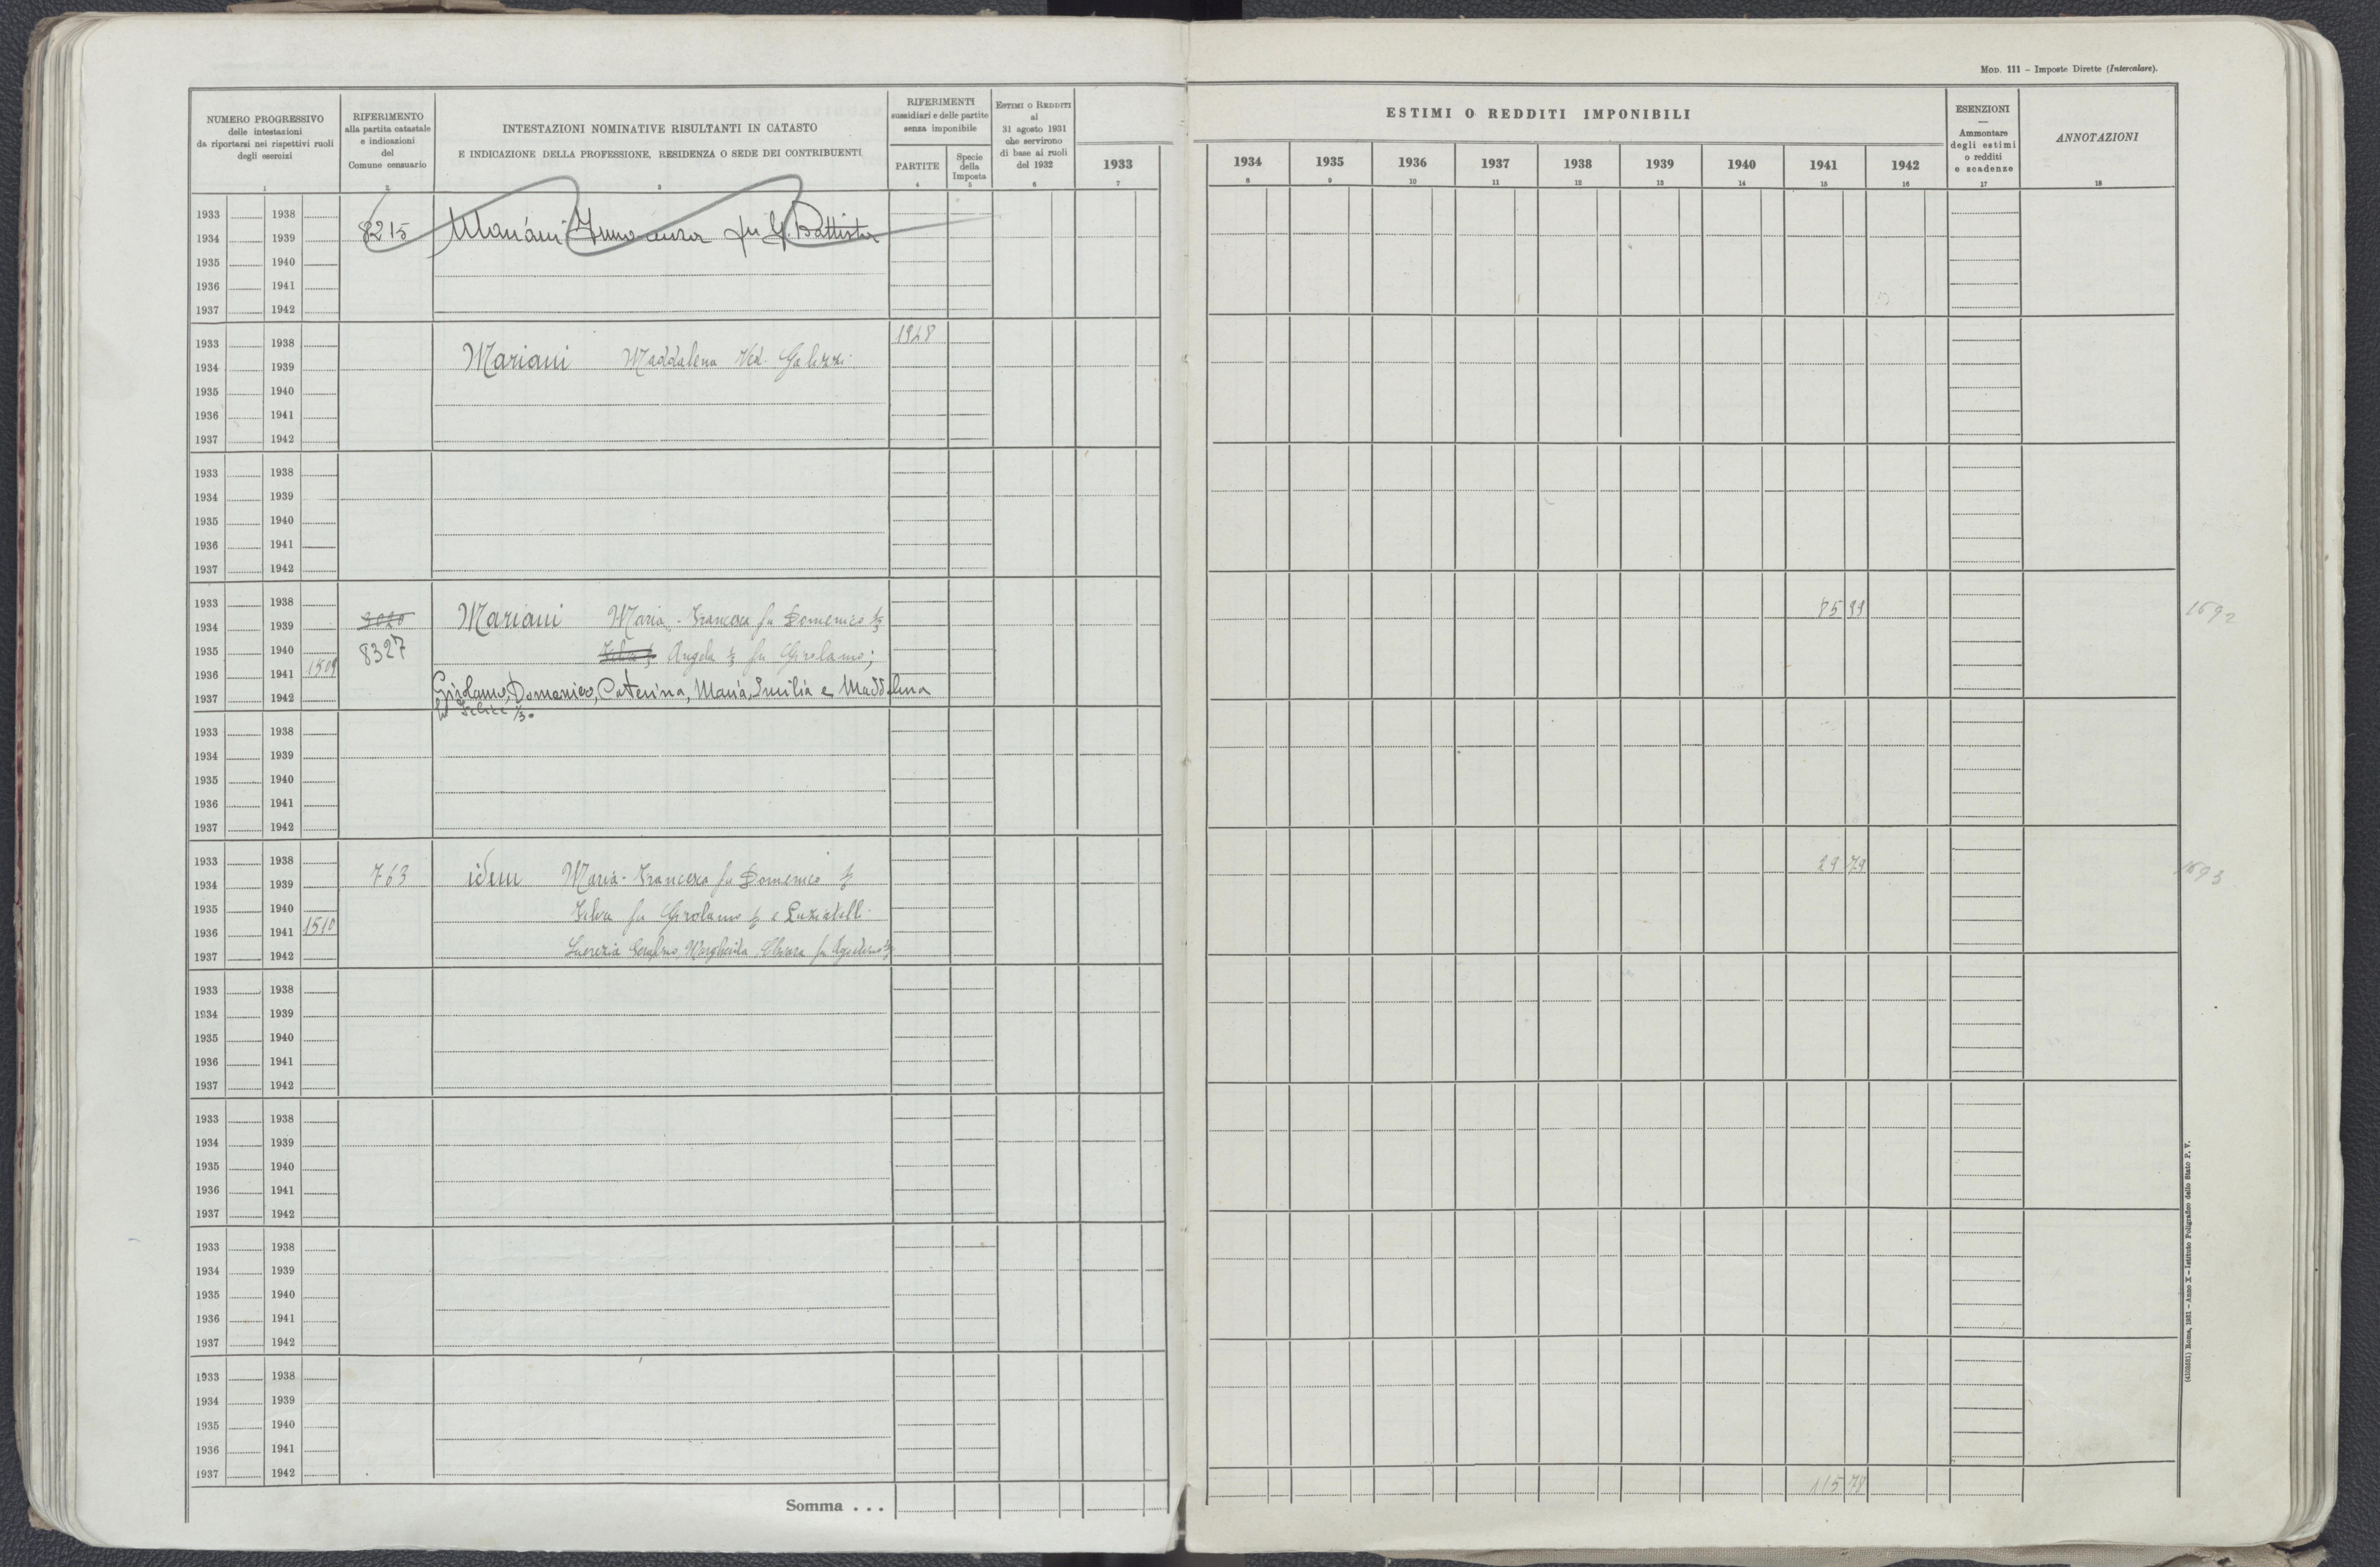 MOD. 111 – Imposte Dirette (Intercalare).
NUMERO PROGRESSIVO
delle intestazioni
da riportarsi nei rispettivi ruoli
degli esercizi
1
RIFERIMENTO
alla partita catastale
e indicazioni
del
Comune censuario
2
INTESTAZIONI NOMINATIVE RISULTANTI IN CATASTO
E INDICAZIONE DELLA PROFESSIONE, RESIDENZA O SEDE DEI CONTRIBUENTI
3
RIFERIMENTI
sussidiari e delle partite
senza imponibile
PARTITE
4
Specie
della
Imposta
5
ESTIMI O REDDITI
al
31 agosto 1931
che servirono
di base ai ruoli
del 1932
6
1933
7
ESTIMI O REDDITI IMPONIBILI
1934 1935 1936 1937 1938 1939 1940 1941 1942
8 9 10 11 12 13 14 15 16
ESENZIONI
—
Ammontare
degli estimi
o redditi
e scadenze
17
ANNOTAZIONI
18
1933 1938
1934 1939 8215 Mariani Innocenza fu G. Battista
1935 1940
1936 1941
1937 1942
1928
1933 1938
1934 1939 Mariani Maddalena Ved. Galizzi
1935 1940
1936 1941
1937 1942
1933 1938
1934 1939
1935 1940
1936 1941
1937 1942
1933 1938 85 99 1692
1934 1939 Mariani Maria - Francesca fu Domenico 1/3
1935 1940 8327 Angela 1/3 fu Girolamo;
1936 1941 1509
1937 1942 Girolamo, Domenico, Caterina, Maria, Emilia e Maddalena
fu Felice 1/3.
1933 1938
1934 1939
1935 1940
1936 1941
1937 1942
1933 1938 29 79 1693
1934 1939 763 idem Maria - Francesca fu Domenico 1/3
1935 1940 fu Girolamo 1/3 e
1936 1941 1510
1937 1942 Lucrezia Margherita, Chiara fu Agostino 1/3
1933 1938
1934 1939
1935 1940
1936 1941
1937 1942
1933 1938
1934 1939
1935 1940
1936 1941
1937 1942
1933 1938
1934 1939
1935 1940
1936 1941
1937 1942
1933 1938
1934 1939
1935 1940
1936 1941
1937 1942
Somma . . . 115 78
(4103681) Roma, 1931 – Anno X – Istituto Poligrafico dello Stato P. V.